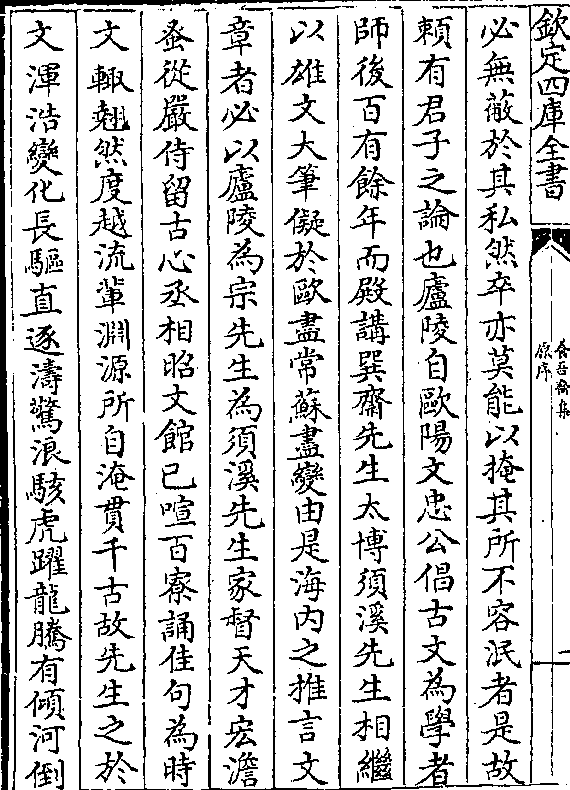 欽定四庫全書
養吾齋集
原序
一
必無蔽於其私然卒亦莫能以掩其所不容泯者是故
頼有君子之論也廬陵自歐陽文忠公倡古文為學者
師後百有餘年而殿講巽齋先生太博須溪先生相繼
以雄文大筆儗於歐盡常蘇盡變由是海内之推言文
章者必以廬陵為宗先生為須溪先生家督天才宏澹
蚤從嚴侍留古心丞相昭文館已喧百寮誦佳句為時
文輙翹然度越流輩淵源所自淹貫千古故先生之於
文渾浩變化長驅直逐濤驚浪駭虎躍龍騰有傾河倒